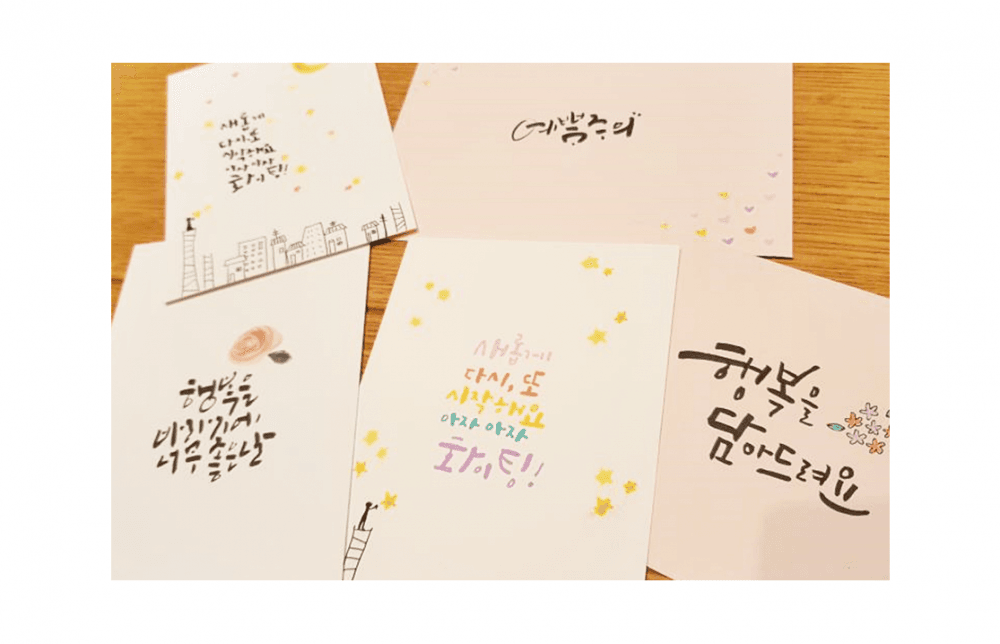 새롭게
다시, 또
시작해요
아자 아자
화이팅!
예쁨주의
행복을
바라기에
너무 좋은 날
새롭게
다시, 또
시작해요
아자 아자
화이팅!
행복을
담아드려요